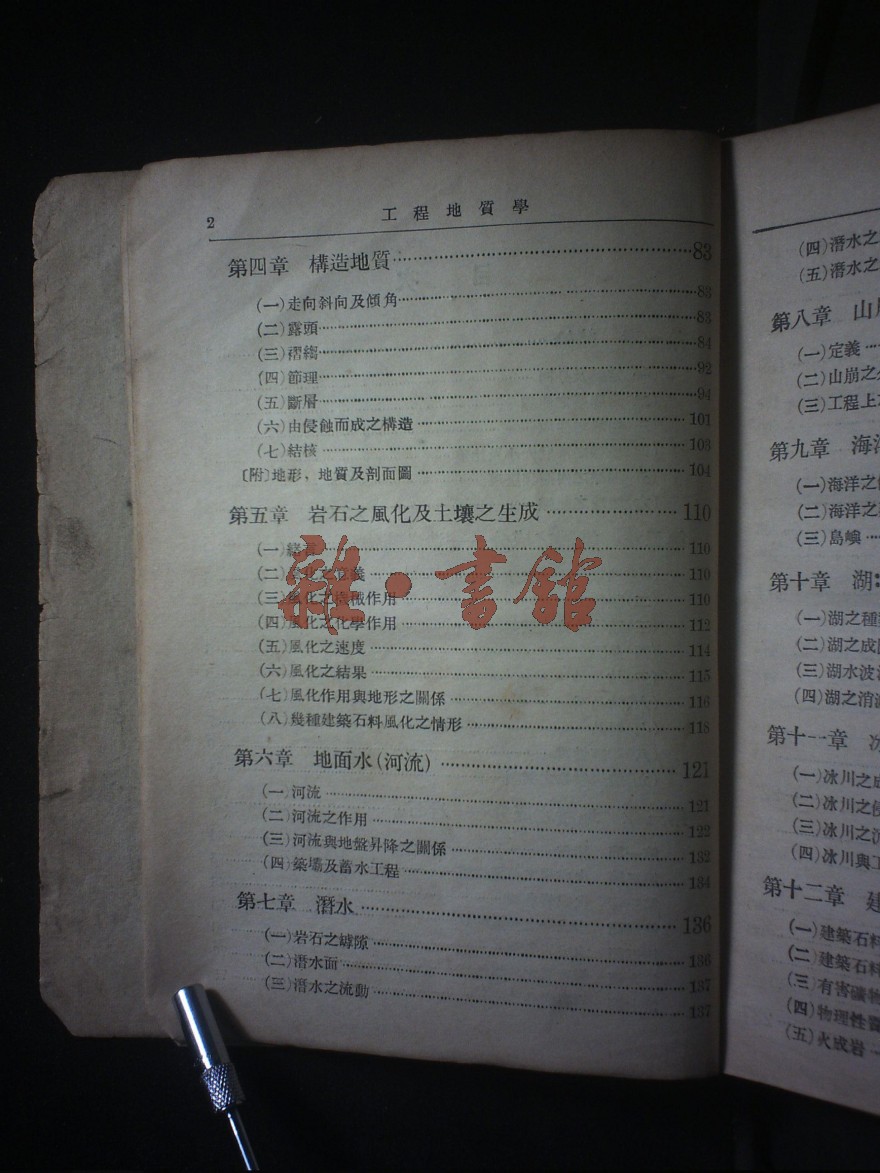 2
工程地質學
第四章 構造地質……83
(一)走向斜向及傾角……83
(二)露頭……83
(三)褶縐……84
(四)節理……92
(五)斷層……94
(六)由侵蝕而成之構造……101
(七)結核……103
〔附〕地形、地質及剖面圖……104
第五章 岩石之風化及土壤之生成……110
(一)緒言……110
(二)風化之定義……110
(三)風化之機械作用……110
(四)風化之化學作用……112
(五)風化之速度……114
(六)風化之結果……115
(七)風化作用與地形之關係……116
(八)幾種建築石料風化之情形……118
第六章 地面水(河流)……121
(一)河流……121
(二)河流之作用……122
(三)河流與地盤昇降之關係……132
(四)築壩及蓄水工程……134
第七章 潛水……136
(一)岩石之罅隙……136
(二)潛水面……137
(三)潛水之流動……137
雜·書館
(四)潛水之
(五)潛水之
第八章 山
(一)定義…
(二)山崩之
(三)工程上
第九章 海
(一)海洋之
(二)海洋之
(三)島嶼…
第十章 湖
(一)湖之種
(二)湖之成
(三)湖水波
(四)湖之消
第十一章
(一)冰川之成
(二)冰川之
(三)冰川之
(四)冰川與
第十二章 建
(一)建築石料
(二)建築石料
(三)有害礦物
(四)物理性質
(五)火成岩…